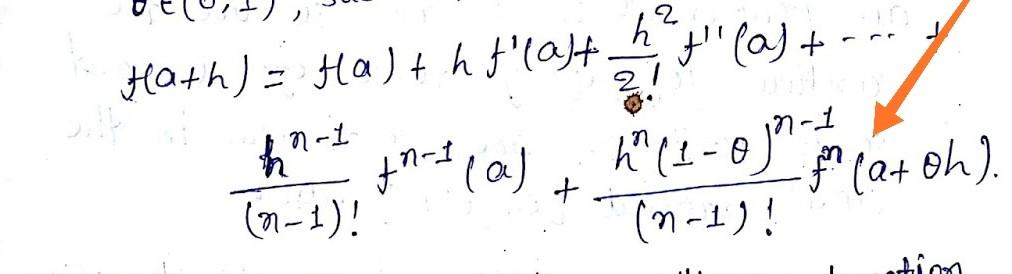 θ∈(0,1),
f(a+h) = f(a) + h f'(a) + h²/2! f''(a) + ---- +
h^(n-1)/(n-1)! f^(n-1) (a) + h^n (1-θ)^(n-1)/(n-1)! f^n (a+θh).